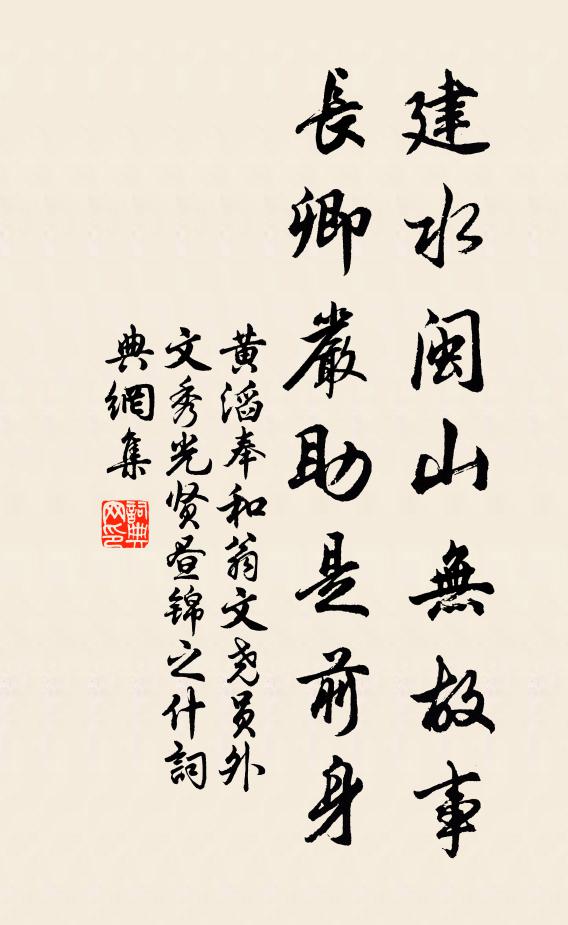 建水闽山無故事
長卿嚴助是前身
黄滔奉和翁文尧员外
文秀光贤昼锦之什詞
典網集
詞典网印